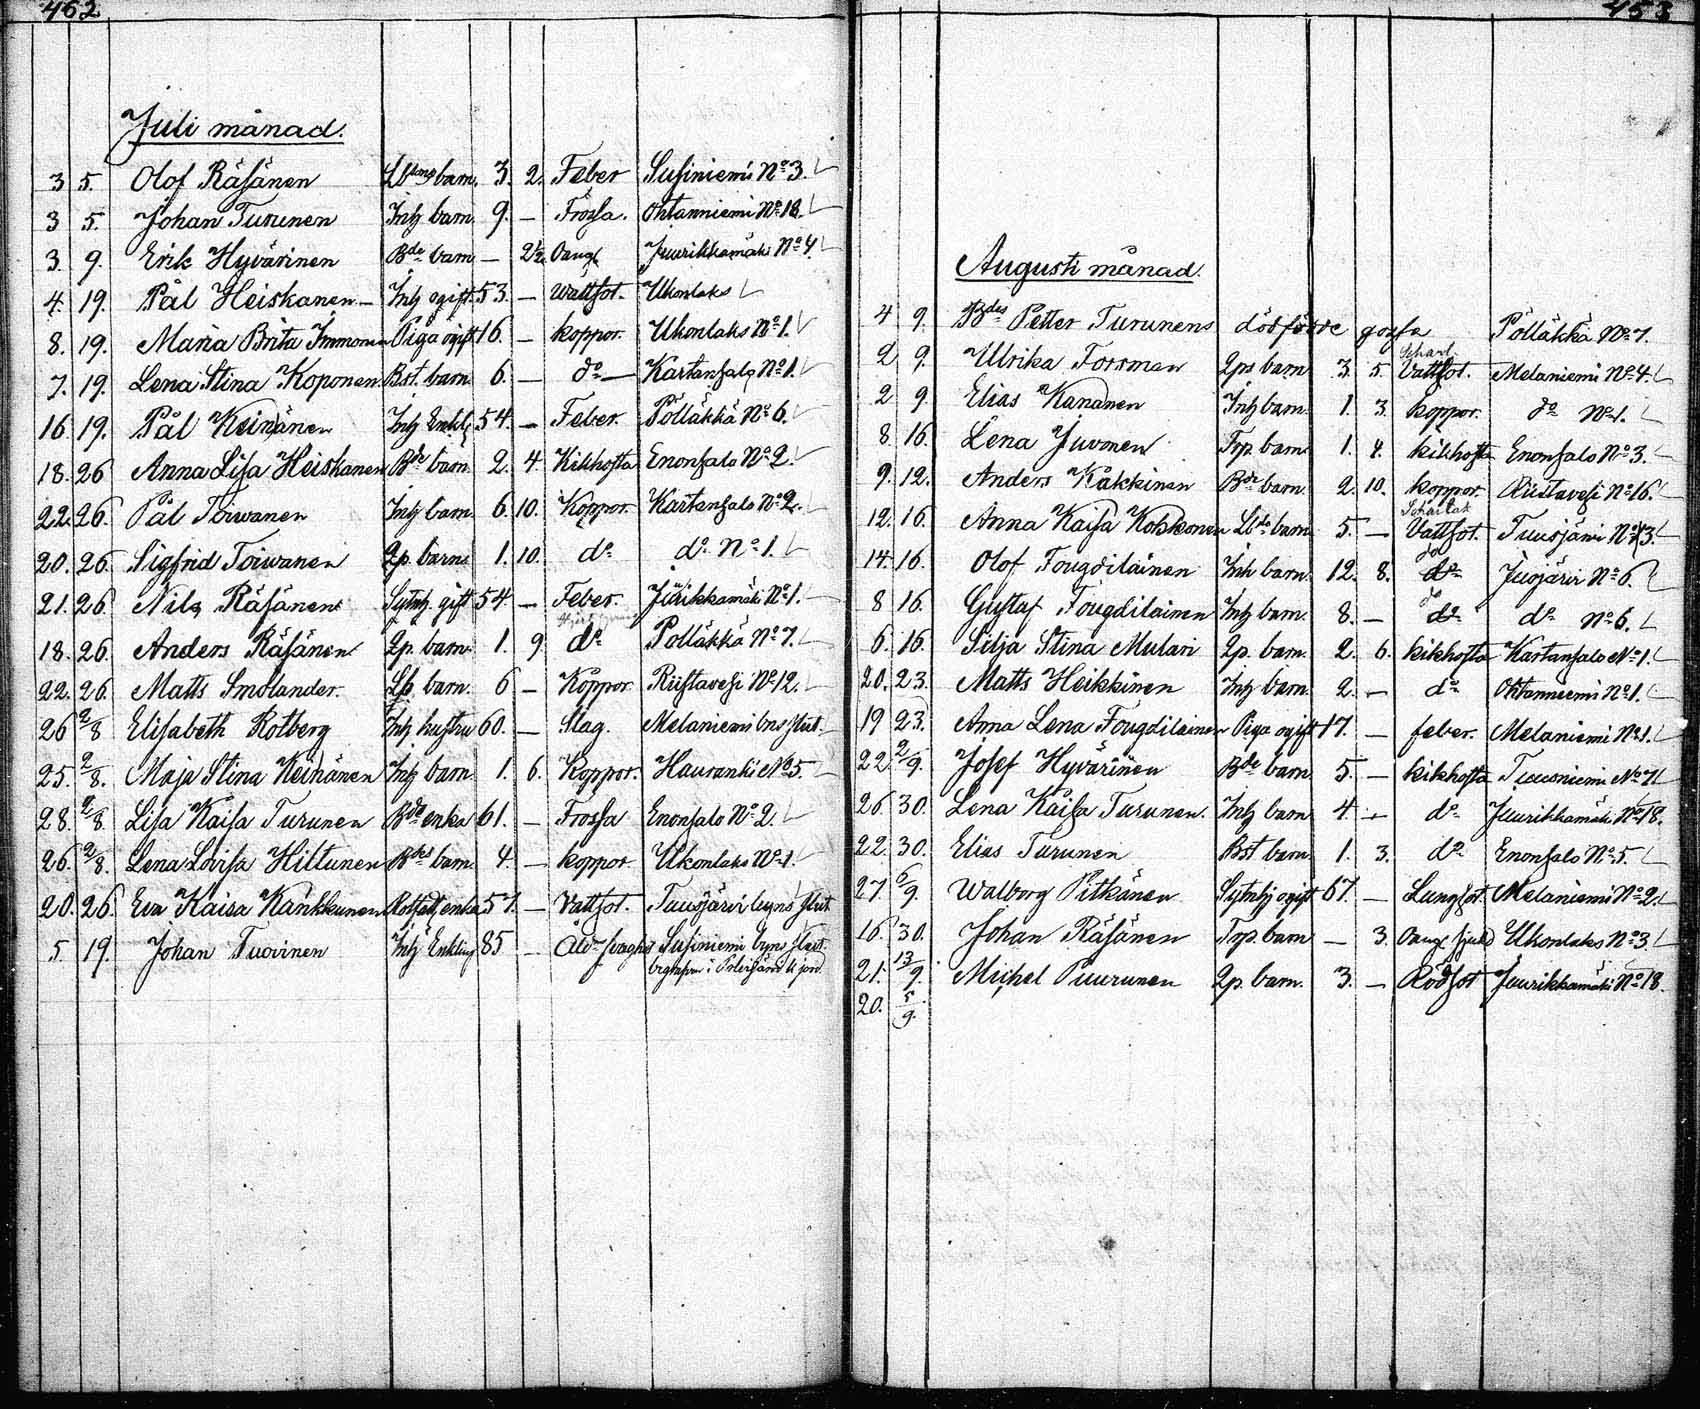 462
Juli månad.
3 5. Olof Räsänen Lbtmgs barn. 3. 2. Feber Susiniemi No 3.
3 5. Johan Turunen Inh barn 9. — Frossa. Ohtanniemi No 18.
3. 9. Erik Hyvärinen Bde barn — 2½ Oang Juurikkamäki No 4
4. 19. Pål Heiskanen — Inh ogift 53. — Wattsot. Ukonlaks
8. 19. Maria Brita Immonen Piga ogift 16. — koppor. Ukonlaks No 1.
7. 19. Lena Stina Koponen Bst. barn 6. — do — Kartansalo No 1.
16. 19. Pål Keinänen Inh Enkl 54. — Feber. Pölläkkä No 6.
18. 26 Anna Lisa Heiskanen Bde barn 2. 4. Kikhosta Enonsalo No 2.
22. 26. Pål Toiwanen Inh barn. 6. 10. Koppor. Kartansalo No 2.
20. 26. Sigfrid Toiwanen Lp. barns 1. 10. do do No 1.
21. 26. Nils Räsänen Sytnh. gift 54. — Feber. Juurikkamäki No 1.
18. 26. Anders Räsänen Lp. barn 1. 9 do Polläkkä No 7.
22. 26. Matts Smolander. Lp. barn. 6 — Koppor Riistavesi No 12.
26 2/8 Elisabeth Rotberg Inh hustru 60. — Slag. Melaniemi bns
25. 2/8. Maja Stina Keinänen Inh barn 1. 6. Koppor. Hauranki No 5.
28. 2/8 Lisa Kaisa Turunen Bde enka 61. — Frossa Enonsalo No 2.
26. 2/8. Lena Lovisa Hiltunen Bdes barn 4. — koppor Ukonlaks No 1.
20. 26. Eva Kaisa Kankkunen enka 57. — Vattsot. Tuusjärvi byns
5 19. Johan Tuovinen Inh Enkling 85 — Susiniemi byns
453
Augusti månad.
4 9. Bdes Petter Turunens dödfödde gosse Pölläkkä No 7.
Scharl
2 9. Ulrika Forsman Lps barn 3. 5. Vattsot. Melaniemi No 4.
2 9. Elias Kananen Inh barn. 1. 3. koppor. do No 1.
8. 16. Lena Juvonen Trp barn 1. 4. kikhosta Enonsalo No 3.
9. 12. Anders Kakkinen Bde barn. 2. 10. koppor. Riistavesi No 16.
Scharlak
12. 16. Anna Kaisa Kokkonen Lbde barn 5. — Vattsot. Tuusjärvi No 3.
do
14. 16. Olof Fougdilainen Inh barn. 12. 8. do Juojärvi No 6.
do
8 16. Gustaf Fougdilainen Inh barn. 8. — do do No 6.
6. 16. Silja Stina Mulari Lp. barn. 2. 6. kikhosta Kartansalo No 1.
20. 23. Matts Heikkinen Inh barn. 2. — do Ohtanniemi No 1.
19 23. Anna Lena Fougdilainen Piga ogift 17. — feber. Melaniemi No 1.
22. 2/9. Josef Hyvärinen Bde barn 5. — kikhosta Tuusniemi No 7
26 30. Lena Kaisa Turunen. Inh barn 4. — do Juurikkamäki No 18.
22. 30. Elias Turunen Bst barn 1. 3. do Enonsalo No 5.
27 6/9. Walborg Pitkänen Sytnhj ogift 67. — Lungsot. Melaniemi No 2.
16. 30. Johan Räsänen Trp. barn — 3. Oang sjukd Ukonlaks No 3.
21. 13/9. Michel Puurunen Lp. barn. 3. — Rödsot Juurikkamäki No 18.
20. 5/9.